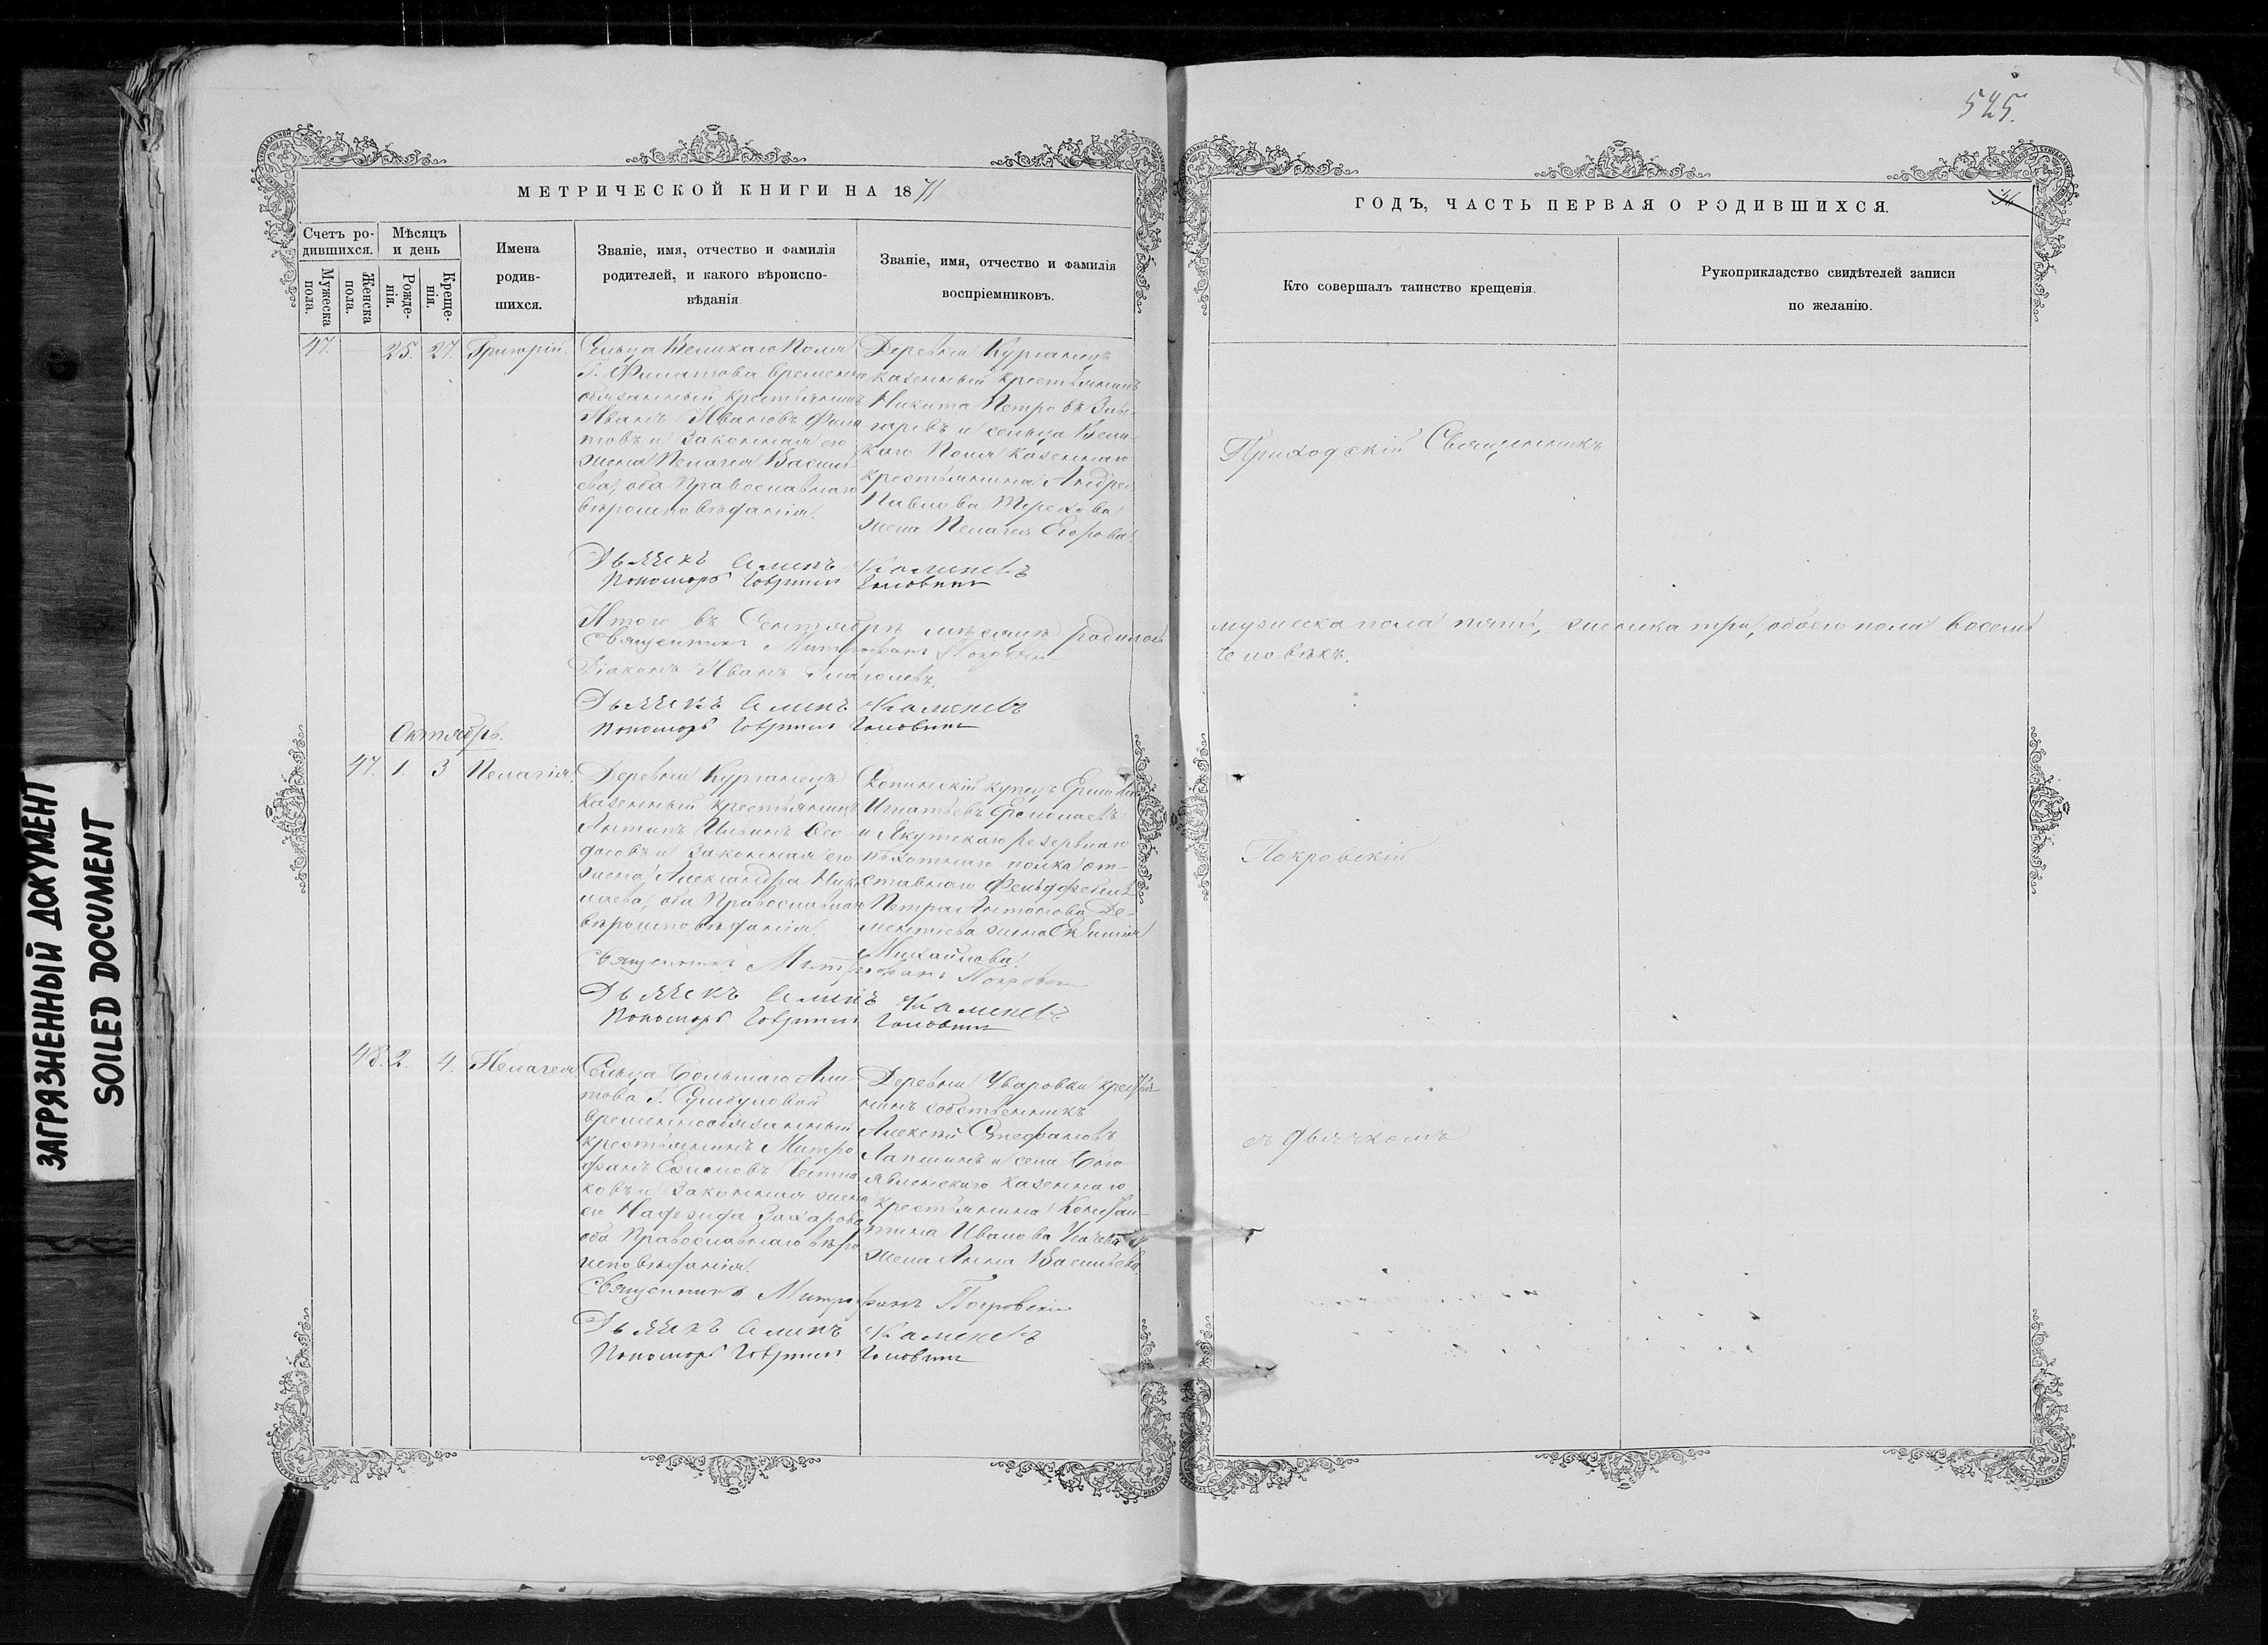 525.
МЕТРИЧЕСКОЙ КНИГИ НА 1871
ГОДЪ, ЧАСТЬ ПЕРВАЯ О РОДИВШИХСЯ.
Счетъ ро-
дившихся.
Мужеска
пола.
Женска
пола.
Мѣсяцъ
и день
Рожде-
нія.
Креще-
нія.
Имена
родив-
шихся.
Званіе, имя, отчество и фамилія
родителей, и какого вѣроиспо-
вѣданія
Званіе, имя, отчество и фамилія
воспріемниковъ.
Кто совершалъ таинство крещенія.
Рукоприкладство свидѣтелей записи
по желанію.
47. 25. 27. Григорій.
Сельца Великаго Поля
Г. Филатова временно
обязанный крестьянинъ
Иванъ Ивановъ Фила-
товъ и законная его
жена Пелагея Василь-
ева, оба Православнаго
вѣроисповѣданія.
Деревни Курганецъ
казенный крестьянинъ
Никита Петровъ
и сельца Вели-
каго Поля казеннаго
крестьянина Андрея
Павлова Терехова
жена Пелагея Егорова.
Приходскій Священникъ
Дьячекъ Каменевъ
Пономарь Гавріилъ Головинъ
Итого въ Сентябрѣ мѣсяцѣ родилось
мужеска пола пять, женска три, обоего пола восемь
человѣкъ.
Священникъ Митрофанъ Покровскій
Діаконъ Иванъ Глаголевъ.
Дьячекъ Каменевъ
Пономарь Гавріилъ Головинъ
Октябрь.
47. 1. 3 Пелагія.
Деревни Курганецъ
казенный крестьянинъ
Антипъ Ильинъ Ѳео-
досовъ и законная его
жена Александра Нико-
лаева, оба Православнаго
вѣроисповѣданія.
купецъ
Игнатьевъ
и Якутскаго резервнаго
пѣхотнаго полка от-
ставнаго Фельдфебеля
Петра Антонова Де-
ментіева жена
Михайлова.
Покровскій
Священникъ Митрофанъ Покровскій
Дьячекъ Каменевъ
Пономарь Гавріилъ Головинъ
48. 2. 4. Пелагея
Сельца Большаго
това Г.
временнообязанный
крестьянинъ Митро-
фанъ
ковъ и законная жена
его Надежда Захарова
оба Православнаго вѣро
исповѣданія.
Деревни Уваровки крестья-
нинъ собственникъ
Алексѣй Стефановъ
Лапшинъ и села Бого-
явленскаго казеннаго
крестьянина Констан-
тина Иванова
жена Анна Васильева.
съ дьячкомъ
Священникъ Митрофанъ Покровскій
Дьячекъ Каменевъ
Пономарь Гавріилъ Головинъ
ЗАГРЯЗНЕННЫЙ ДОКУМЕНТ
SOILED DOCUMENT